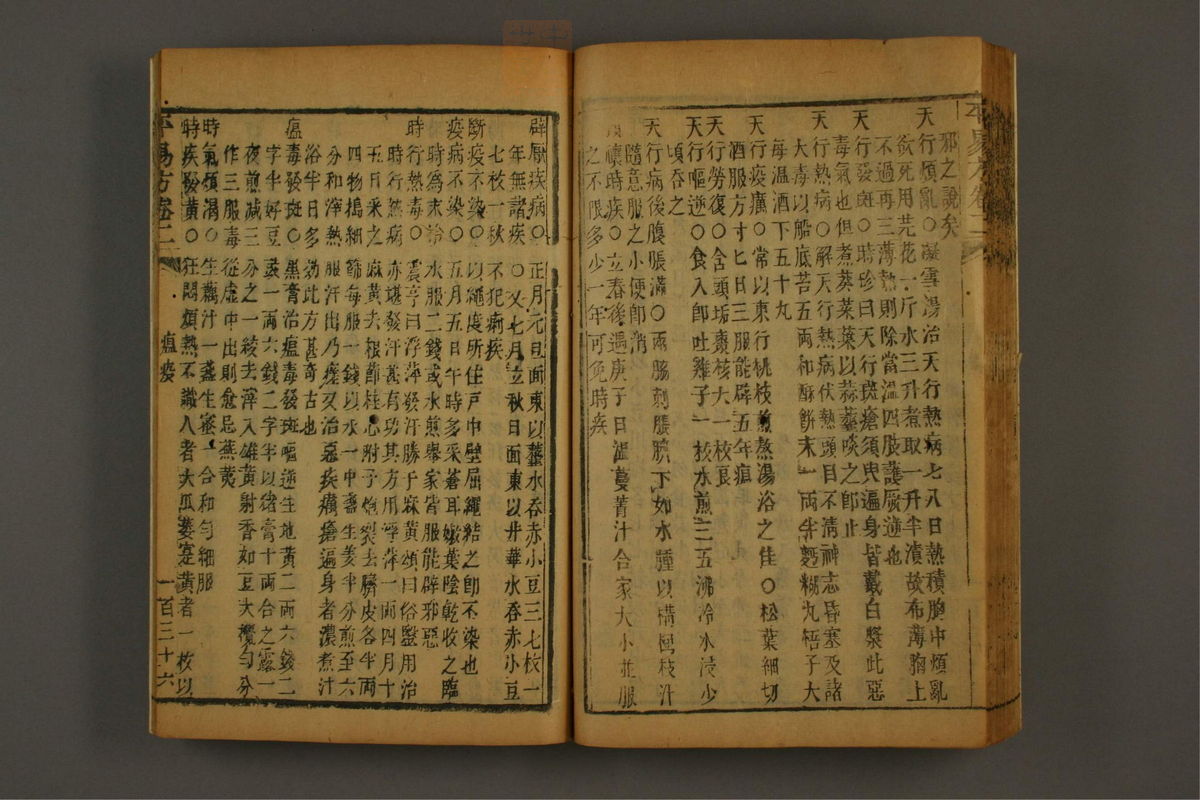 邪之說矣
天行煩亂○凝雪湯治天行熱病七八日熱積胸中煩亂
欲死用芫花一斤水三升煮取一升半漬故布薄胸上
不過再三薄熱則除當溫四肢護厥逆也
天行發斑○時珍曰天行斑瘡須臾遍身皆戴白漿此惡
毒氣也但煮葵菜葉以蒜虀啖之卽止
天行熱病○解天行熱病伏熱頭目不清神志昏塞及諸
大毒以船底苔五兩和酥餅末一兩半麪糊丸梧子大
每溫酒下五十九
天行疫癘○常以東行桃枝煎熬湯浴之佳○松葉細切
酒服方寸匕日三服能辟五年瘟
天行勞復○含頭垢棗核大一枚良
天行嘔逆○食入卽吐雞子一枚水煎三五沸冷水浸少
頃吞之
天行病後腹脹滿○兩脇刺脹臍下如水腫以構樹枝汁
隨意服之小便卽消
禳時疾○立春後遇庚子日溫蔓菁汁合家大小並服
之不限多少一年可免時疾
辟厭疾病○正月元旦面東以虀水吞赤小豆三七枚一
年無諸疾○又七月立秋日面東以井華水吞赤小豆
七枚一秋不犯痢疾
斷疫不染○以繩度所住戶中壁屈繩結之卽不染也
疫病不染○五月五日午時多采蒼耳嫩葉陰乾收之臨
時爲末冷水服二錢或水煎舉家皆服能辟邪惡
時行熱毒○震亨曰浮萍發汗勝于麻黃頌曰俗醫用治
時行熱病亦堪發汗甚有功其方用浮萍一兩四月十
五日采之麻黃去根節桂心附子炮裂去臍皮各半兩
四物搗細篩每服一錢以水一中盞生姜半分煎至六
分和滓熱服汗出乃瘥又治惡疾癘瘡遍身者濃煮汁
浴半日多効此方甚奇古也
瘟毒發斑○黑膏治瘟毒發斑嘔逆生地黃二兩六錢二
字半好豆豉一兩六錢二字半以猪膏十兩合之露一
夜煎減三分之一絞去滓入雄黃射香如豆大攪勻分
作三服毒從虛中出則愈忌蕪荑
時氣煩渴○生藕汁一盞生蜜一合和勻細服
時疾發黃○狂悶煩熱不識人者大瓜蔞寔黃者一枚以
平易方卷二
瘟疫
一百三十六